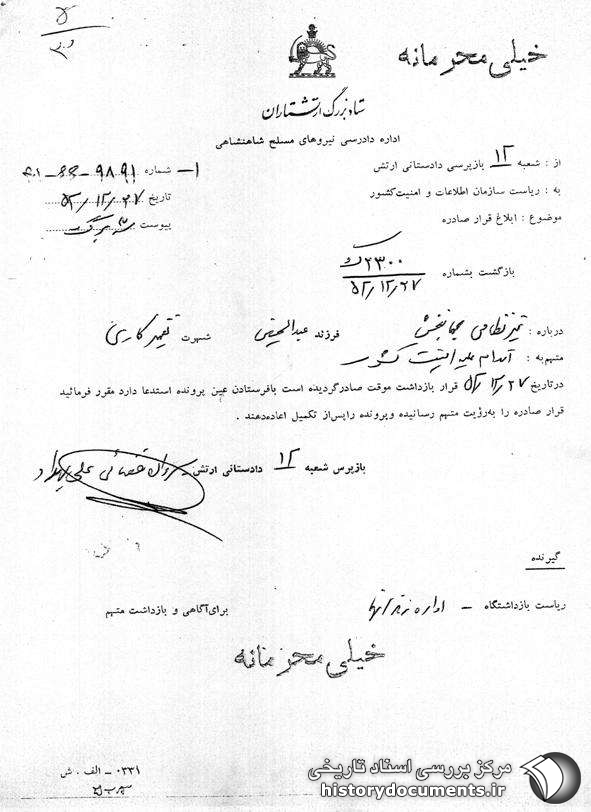 خیلی محرمانه
ستاد بزرگ ارتشتاران
اداره دادرسی نیروهای مسلح شاهنشاهی
از : شعبه ۱۲ بازپرسی دادستانی ارتش
به : ریاست سازمان اطلاعات و امنیت کشور
موضوع : ابلاغ قرار صادره
شماره
تاریخ ۵۲/۱۲/۲۷
پیوست
بازگشت بشماره ۲۳۰۰
۵۲/۱۲/۲۷
درباره : غیرنظامی فرزند عبدالحسین شهرت
متهم به : اقدام علیه امنیت کشور
در تاریخ ۵۲/۱۲/۲۷ قرار بازداشت موقت صادرگردیده است بافرستادن عین پرونده استدعا دارد مقرر فرمائید
قرار صادره را به‌رؤیت متهم رسانیده وپرونده راپس‌از تکمیل اعاده‌دهند .
بازپرس شعبه ۱۲ دادستانی ارتش - سروان قضائی علی
گیرنده
ریاست بازداشتگاه - اداره برای‌آگاهی و بازداشت متهم
خیلی محرمانه
۰۳۳۱ - الف . ش
مرکز بررسی اسناد تاریخی
historydocuments.ir